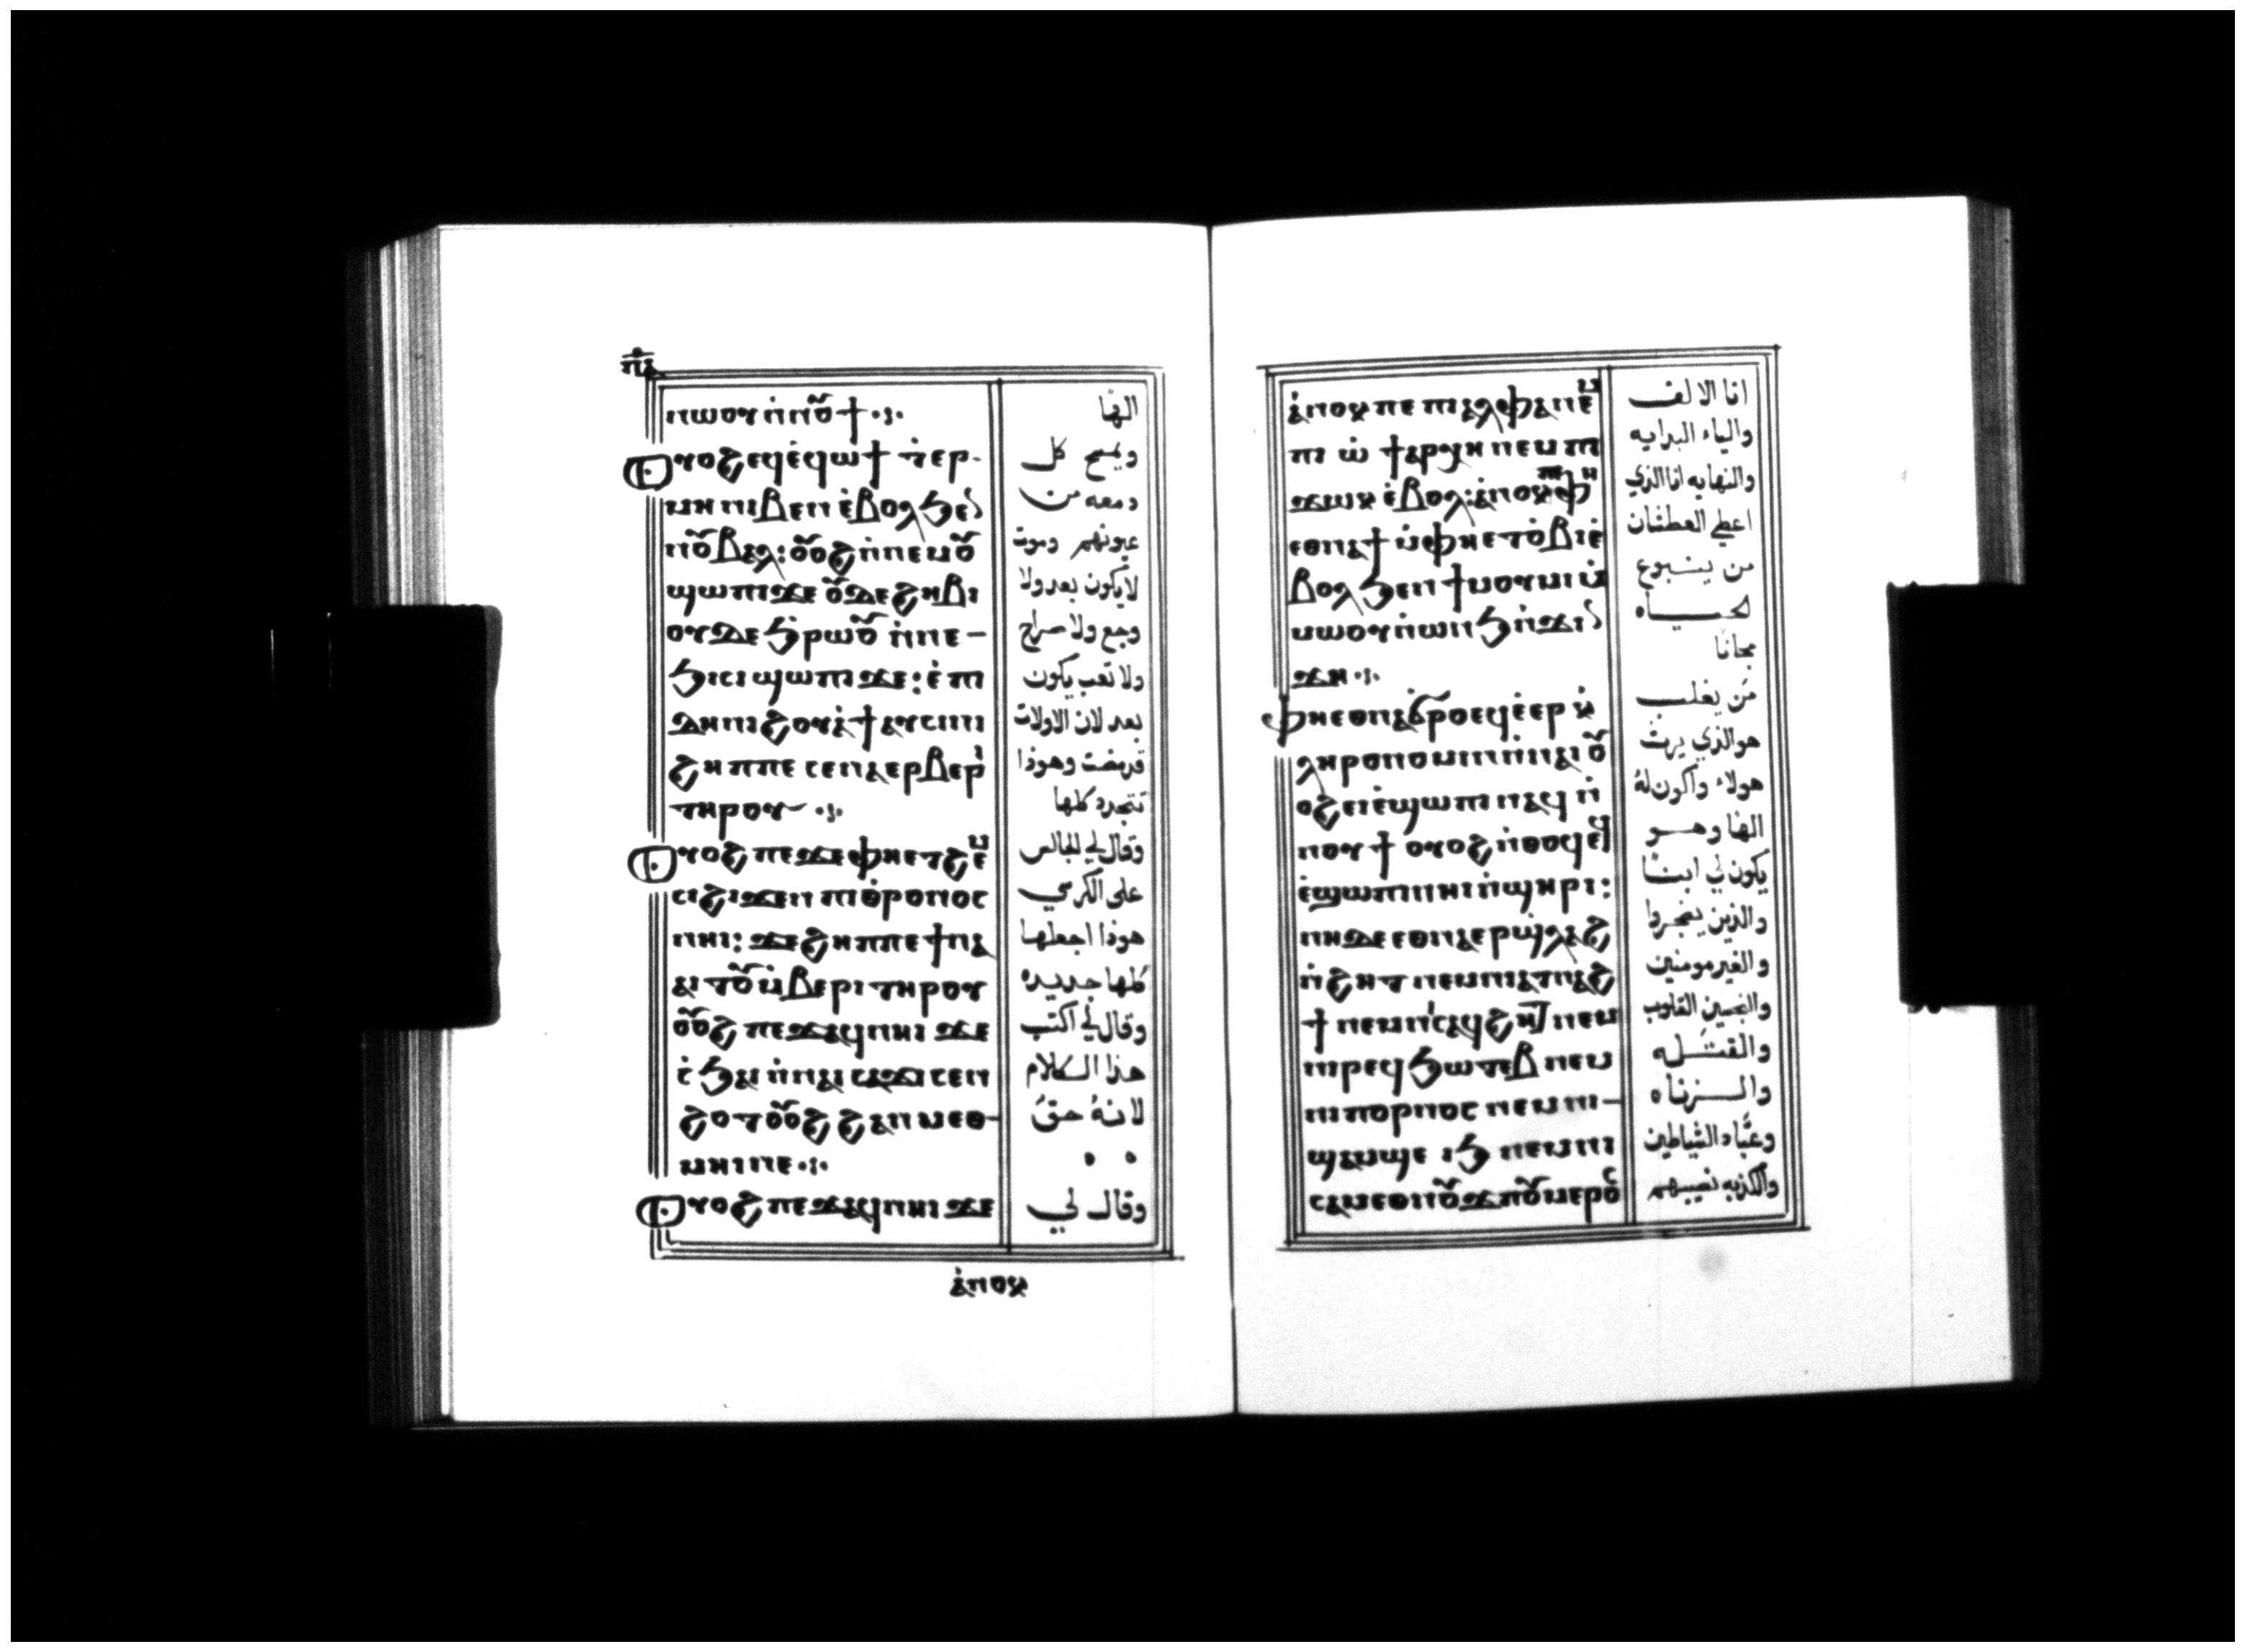 ⲡ̅ⲁ̅
ⲛⲱⲟⲩ ⲛ̀ⲛⲟⲩϯ
ⲟⲩⲟϩ ⲉϥⲉ̀ϥⲱϯ ⲛ̀ⲉⲣ-
ⲙⲏ ⲛⲓⲃⲉⲛ ⲉ̀ⲃⲟⲗ ϧⲉⲛ
ⲛⲟⲩⲃⲁⲗ: ⲟⲩⲟϩ ⲛ̀ⲛⲉ ⲙⲟⲩ
ϣⲱⲡⲓ ϫⲉ ⲟⲩⲇⲉ ϩⲏⲃⲓ
ⲟⲩⲇⲉ ϧ̀ⲣⲱⲟⲩ ⲛ̀ⲛⲉ-
ϧⲓⲥⲓ ϣⲱⲡⲓ ϫⲉ: ⲉ̀ⲡⲓ
ⲇⲏ ⲛⲓϩⲟⲩⲁ̀ϯ ⲁⲩⲥⲓⲛⲓ
ϩⲏⲡⲡⲉ ⲥⲉⲛⲁⲉⲣⲃⲉⲣⲓ
ⲧⲏⲣⲟⲩ
ⲟⲩⲟϩ ⲡⲉϫⲉ ⲫⲏ ⲉⲧϩⲉⲙ
ⲥⲓ ϩⲓϫⲉⲛ ⲡⲓⲑⲣⲟⲛⲟⲥ
ⲛⲏⲓ: ϫⲉ ϩⲏⲡⲡⲉ ϯⲛⲁ
ⲁⲓⲧⲟⲩ ⲙ̀ⲃⲉⲣⲓ ⲧⲏⲣⲟⲩ
ⲟⲩⲟϩ ⲡⲉϫⲁϥ ⲛⲏⲓ ϫⲉ
ⲥ̀ϧⲁⲓ ⲛ̀ⲛⲁⲓⲥⲁϫⲓ ⲥⲉⲛ
ϩⲟⲧ ⲟⲩⲟϩ ϩⲁⲛⲙⲉⲑ-
ⲙⲏⲓ ⲛⲉ
ⲟⲩⲟϩ ⲡⲉϫⲁϥ ⲛⲏⲓ ϫⲉ
ⲁ̀ⲛⲟⲕ
الها
ويمسح كل
دمعه من
عيونهم وموت
لايكون بعد ولا
وجع ولا صراخ
ولا تعب يكون
بعد لان الاولات
قد مضت وهوذا
تتجدد كلها
وقال لي الجالس
على الكرسي
هوذا اجعلها
كلها جديده
وقال لي اكتب
هذا الكلام
لانهُ حقٌ
وقال لي
ⲁ̀ⲛⲟⲕ ⲡⲉ ⲡⲓⲁⲗⲫⲁ ⲛⲉⲙ
ⲡⲓ ⲱ̀ ϯⲁⲣⲭⲏ ⲛⲉⲙ ⲡⲓ
ϫⲱⲕ ⲉ̀ⲃⲟⲗ: ⲁ̀ⲛⲟⲕ ⲫⲏ
ⲉⲑⲛⲁϯ ⲙ̀ⲫⲏ ⲉⲧⲟ̀ⲃⲓ ⲉ̀
ⲃⲟⲗ ϧⲉⲛ ϯⲙⲟⲩⲙⲓ ⲙ̀
ⲙⲱⲟⲩ ⲛ̀ⲱⲛϧ ⲛ̀ϫⲓⲛ
ϫⲏ
ⲫⲏ ⲉⲑⲛⲁϭⲣⲟ ⲉϥⲉ̀ⲉⲣⲕ̀
ⲗⲏⲣⲟⲛⲟⲙⲓⲛ ⲛ̀ⲛⲁⲓ ⲟⲩ
ⲟϩ ⲉⲓⲉ̀ϣⲱⲡⲓ ⲛⲁϥ ⲛ̀
ⲛⲟⲩϯ ⲟⲩⲟϩ ⲛ̀ⲑⲟϥ ⲉϥ
ⲉ̀ϣⲱⲡⲓ ⲛⲏⲓ ⲛ̀ϣⲏⲣⲓ:
ⲛⲏ ⲇⲉ ⲉⲑⲛⲁⲉⲣ
ⲛ̀ϩⲏⲧ ⲛⲉⲙ ⲛⲓⲁⲧⲛⲁϩ
ϯ ⲛⲉⲙ
ⲛⲉⲙ ⲛⲓⲣⲉϥϧⲱⲧⲉⲃ ⲛⲉⲙ
ⲛⲓⲡⲟⲣⲛⲟⲥ ⲛⲉⲙ ⲛⲓ-
ϣⲁⲙϣⲉ ⲓϧ ⲛⲉⲙ ⲛⲓ
ⲥⲁⲙⲉⲑⲛⲟⲩϫ
انا الالف
والياء البدايه
والنهايه انا الذي
اعطي العطشان
من ينبوع
الحياه
مجانًا
مَن يغلب
هو الذي يرث
هولاء واكون لهُ
الها وهو
يكون لي ابنًا
والذين يضجروا
والغير مومنين
والنجسين القلوب
والقتله
والزناه
وعبَّاد الشياطين
والكذبه نصيبهم